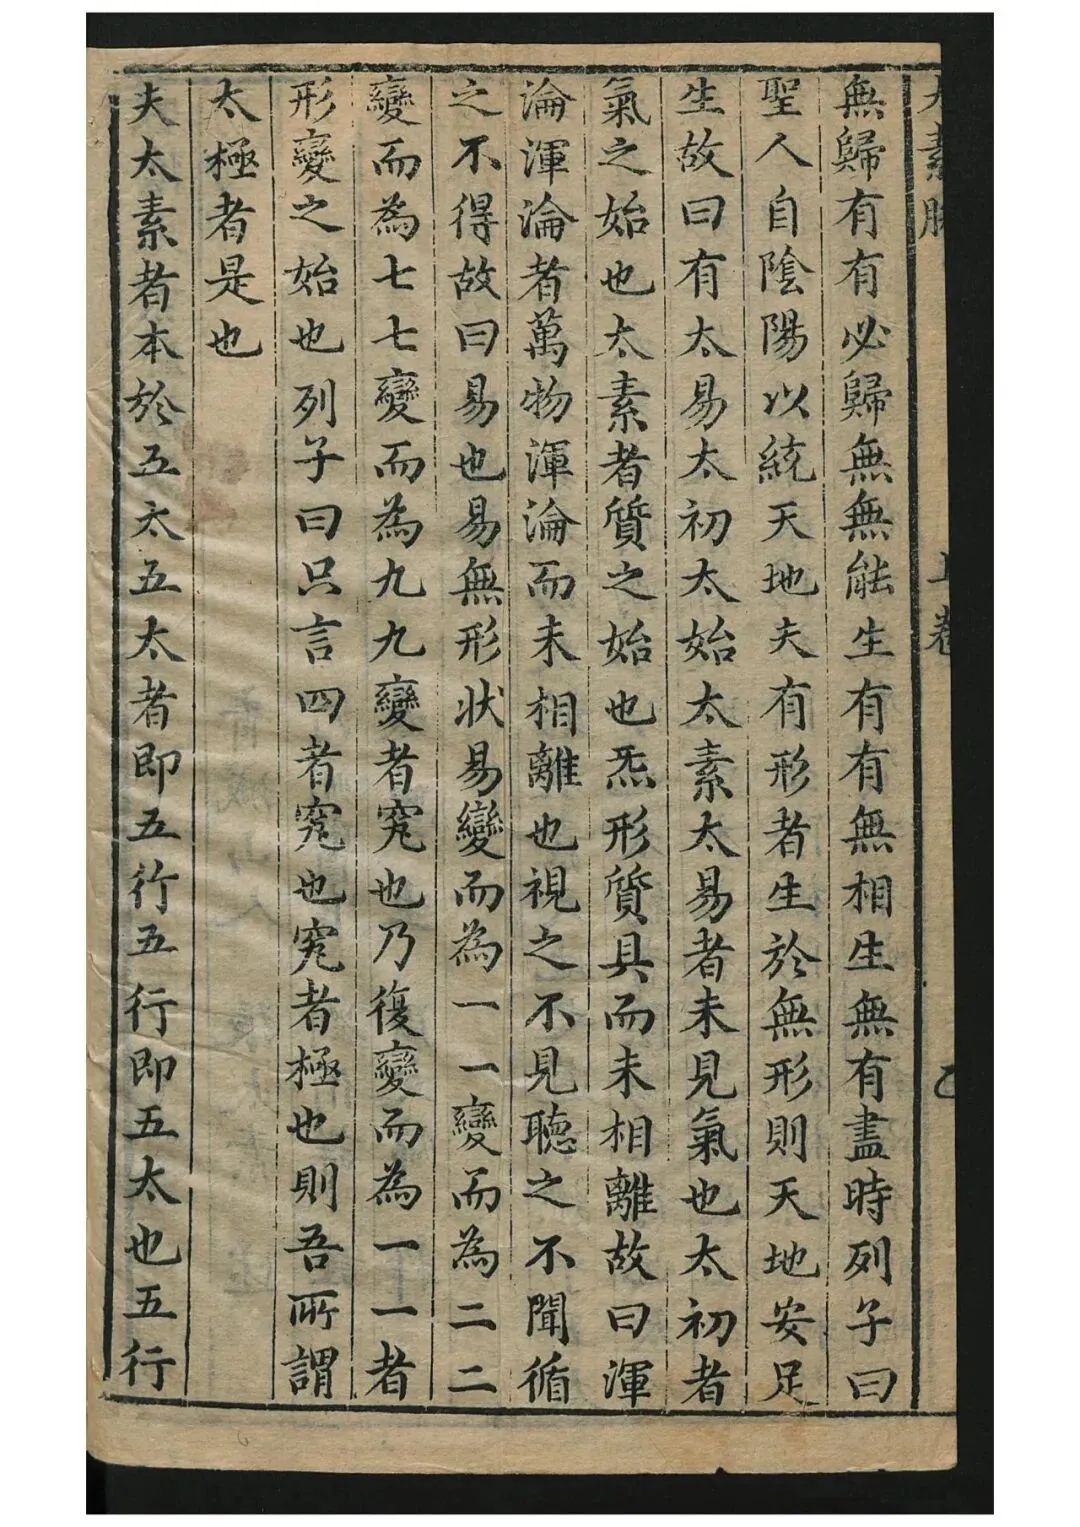 太素脉 上卷
無歸有有必歸無無能生有有無相生無有盡時列子曰
聖人自陰陽以統天地夫有形者生於無形則天地安足
生故曰有太易太初太始太素太易者未見氣也太初者
氣之始也太素者質之始也炁形質具而未相離故曰渾
淪渾淪者萬物渾淪而未相離也視之不見聽之不聞循
之不得故曰易也易無形状易變而為一一變而為二二
變而為七七變而為九九變者究也乃復變而為一一者
形變之始也列子曰只言四者究也究者極也則吾所謂
太極者是也
夫太素者本於五太五太者即五行五行即五太也五行